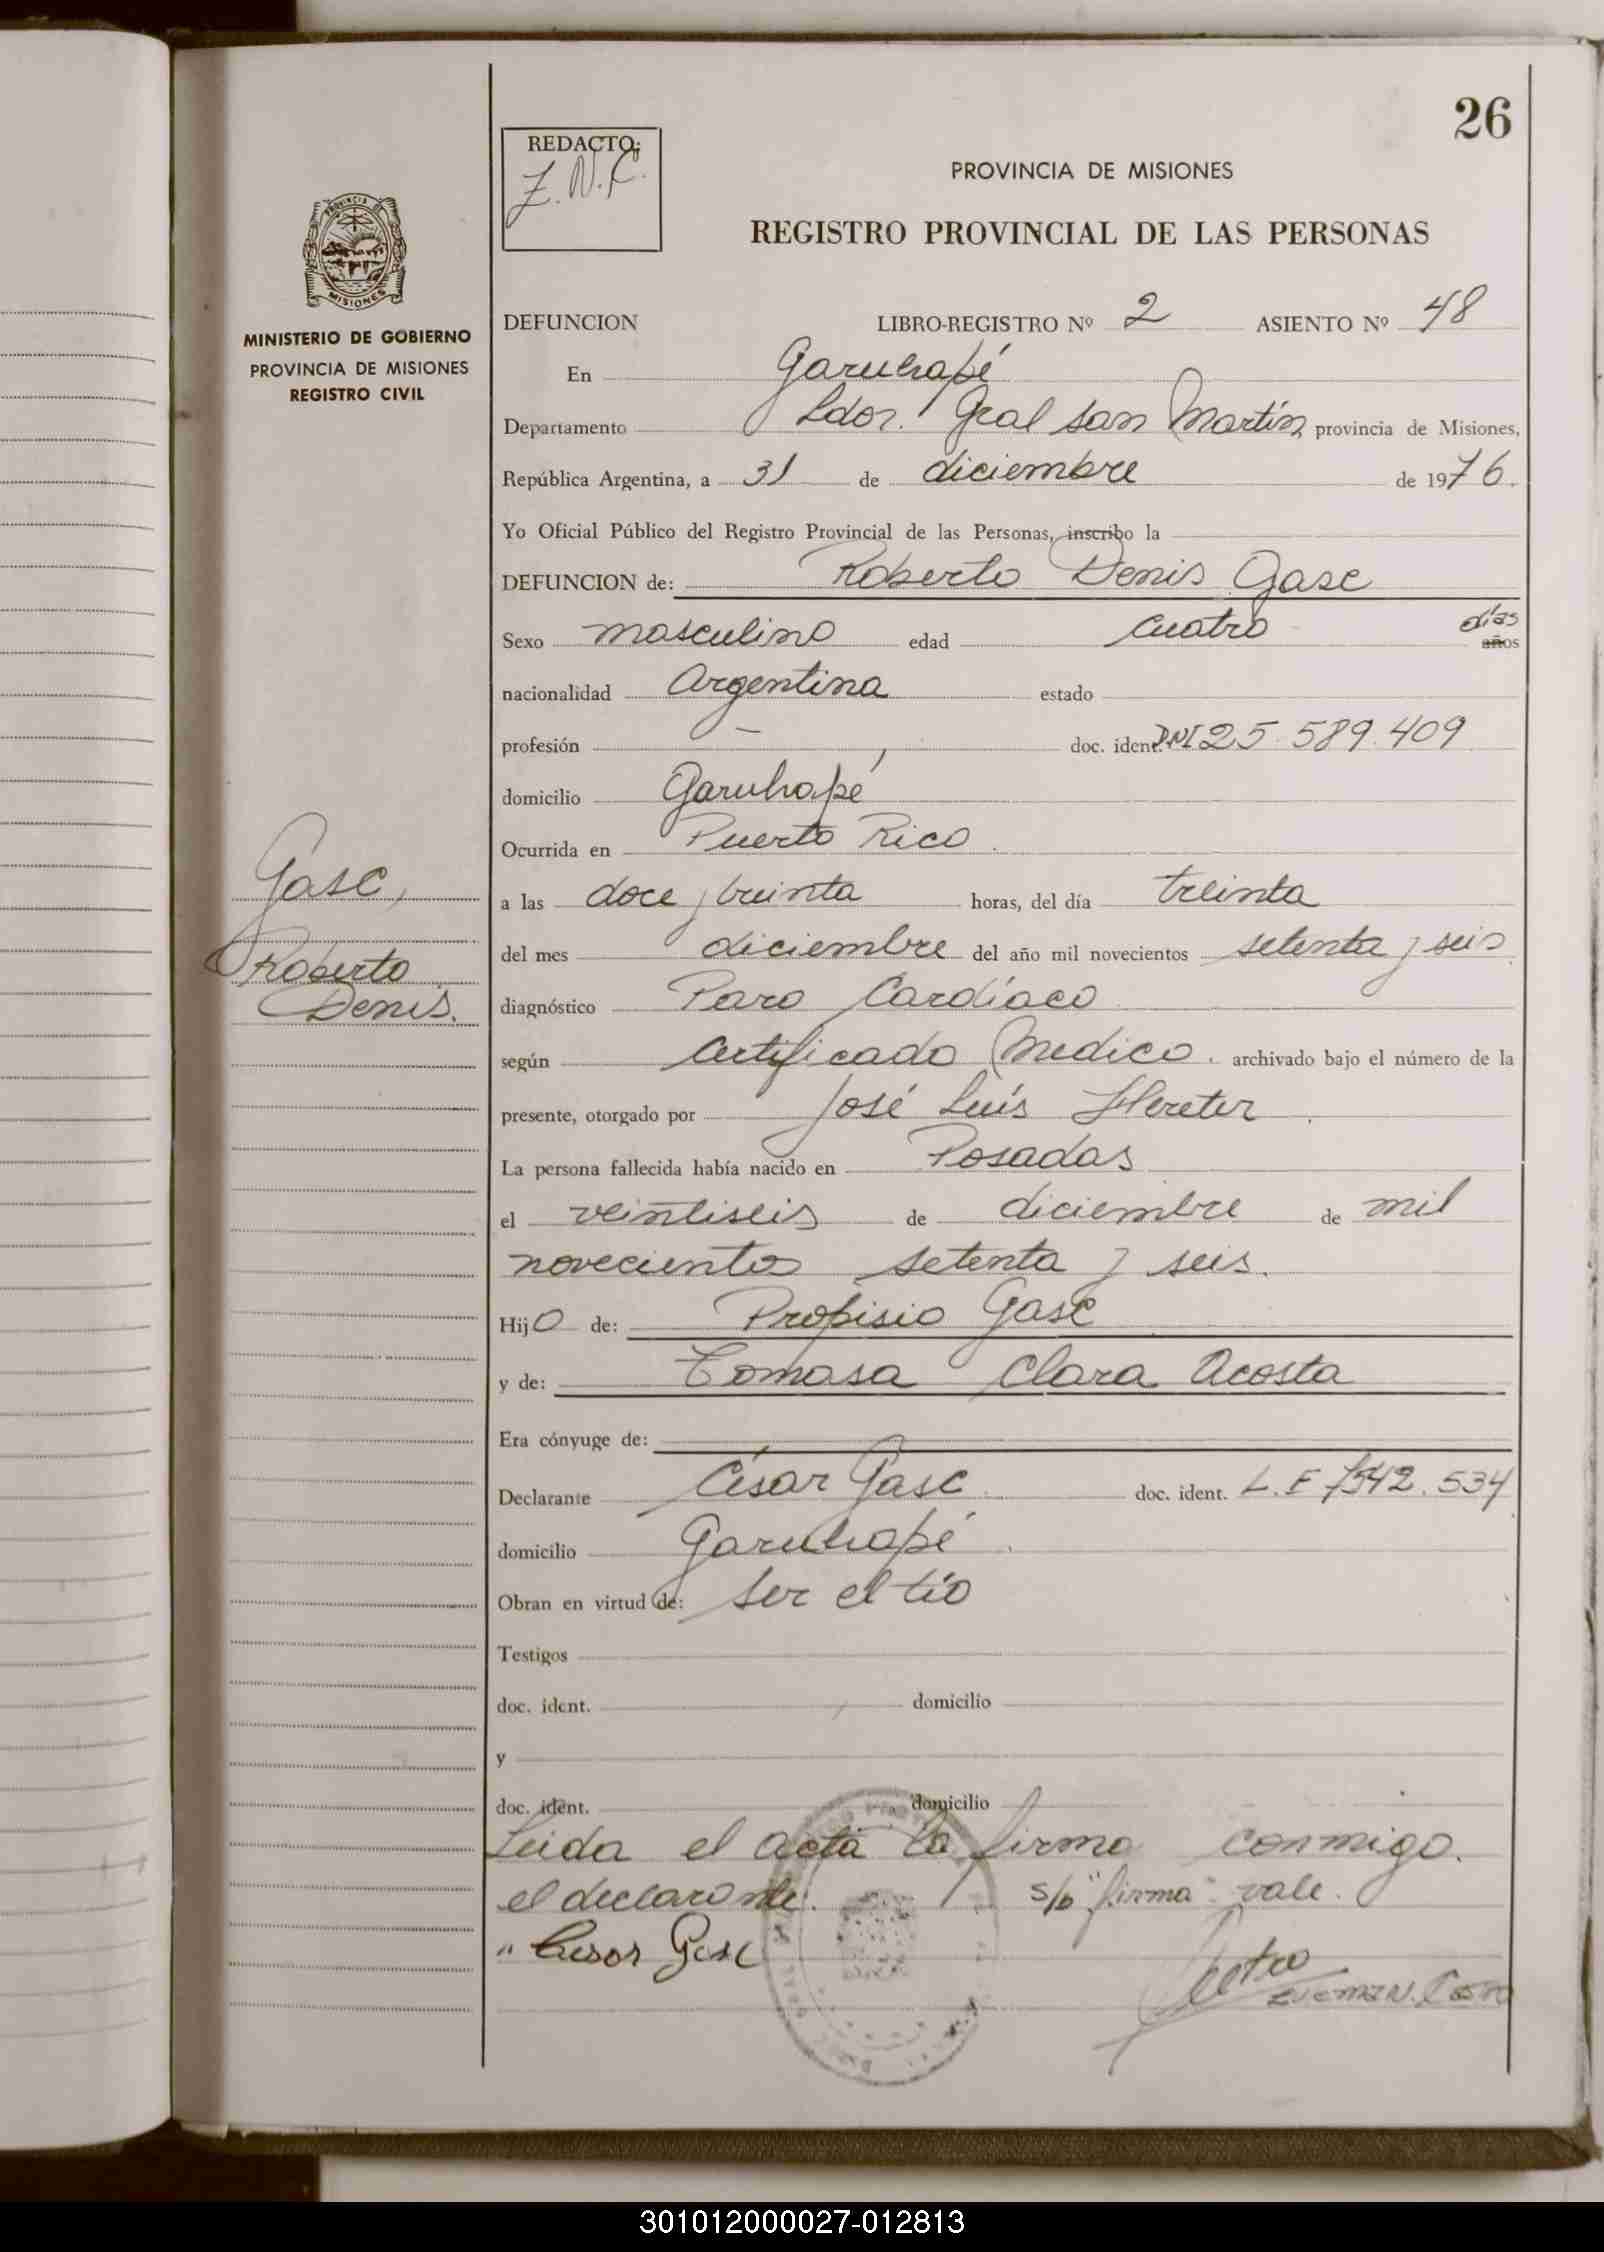 26
REDACTO:
Z. N. C.
PROVINCIA DE MISIONES
REGISTRO PROVINCIAL DE LAS PERSONAS
PROVINCIA DE
MISIONES
MINISTERIO DE GOBIERNO
PROVINCIA DE MISIONES
REGISTRO CIVIL
DEFUNCION LIBRO-REGISTRO Nº 2 ASIENTO Nº 48
En Garuhapé
Departamento Ldor. Gral San Martín, provincia de Misiones,
República Argentina, a 31 de diciembre de 1976.
Yo Oficial Público del Registro Provincial de las Personas, inscribo la
DEFUNCION de: Roberto Denis Gasc
Sexo masculino edad cuatro días años
nacionalidad Argentina estado
profesión — doc. ident. DNI 25.589.409
domicilio Garuhapé
Ocurrida en Puerto Rico.
a las doce y treinta horas, del día treinta
del mes diciembre del año mil novecientos setenta y seis
diagnóstico Paro Cardíaco
según Certificado Medico. archivado bajo el número de la
presente, otorgado por José Luís Hereter.
La persona fallecida había nacido en Posadas
el veintiseis de diciembre de mil
novecientos setenta y seis.
Hijo de: Propisio Gasc
y de: Tomasa Clara Acosta
Era cónyuge de:
Declarante César Gasc doc. ident. L.E 7542.534
domicilio Garuhapé.
Obran en virtud de: ser el tío
Testigos
doc. ident. domicilio
y
doc. ident. domicilio
Leida el acta la firma conmigo.
el declarante. s/b "firma" vale.
" Cesar Gasc
Gasc,
Roberto
Denis.
301012000027-012813